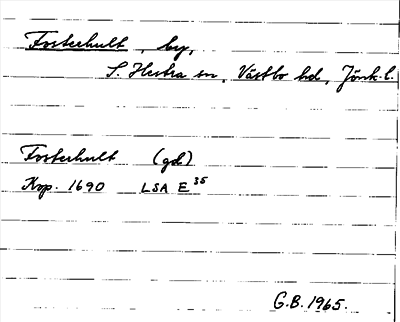 Fosterhult, by,
S. Hestra sn, Västbo hd, Jönk. l.
Fosterhult (gd)
Kop. 1690 LSA E 35
G.B. 1965.